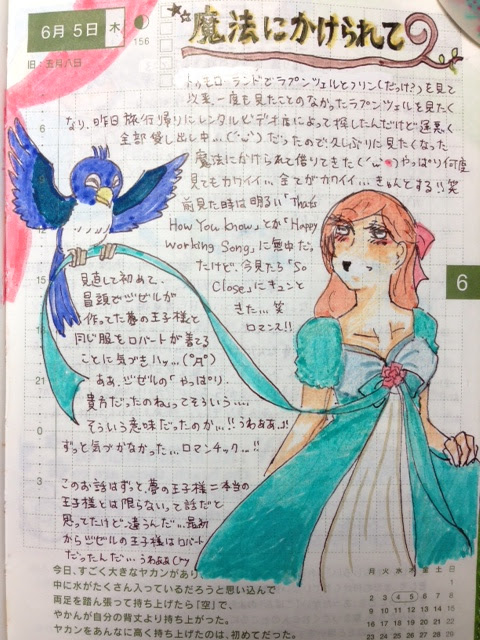 6月 5日 木
156
旧:五月八日
魔法にかけられて
トゥモローランドでラプンツェルとフリン(だっけ?)を見て
以来、一度も見たことのなかったラプンツェルを見たく
なり、昨日旅行帰りにレンタルビデオ店によって探したんだけど運悪く
全部貸し出し中…(´;ω;`)だったので久しぶりに見たくなった
魔法にかけられて借りてきた(´ω`)やっぱり何度
見てもカワイイ…全てがカワイイ…きゅんとする!!笑
前見た時は明るい「Thats
How You know」とか「Happy
working Song」に夢中だっ
たけど、今見たら「So
Close」にキュンと
きた…笑
ロマンス!!
見直して初めて、
冒頭でジゼルが
作ってた夢の王子様と
同じ服をロバートが着てる
ことに気づきハッ…(°Д°)
ああ、ジゼルの「やっぱり、
貴方だったのね」ってそういう…、
そういう意味だったのか…!!うわああ」!
ずっと気づかなかった…ロマンチック…!!
このお話はずっと、夢の王子様=本当の
王子様とは限らないって話だと
思ってたけど、違うんだ…最初
からジゼルの王子様はロバート
だったんだ…うわああ
6
15
21
0
3
今日、すごく大きなヤカンがあり
中に水がたくさん入っているだろうと思い込んで
両足を踏ん張って持ち上げたら「空」で、
やかんが自分の背丈より持ち上がった。
ヤカンをあんなに高く持ち上げたのは、初めてだった。
月 火 水 木 金 土 日
1
2 3 4 5 6 7 8
9 10 11 12 13 14 15
16 17 18 19 20 21 22
23 24 25 26 27 28 29
30